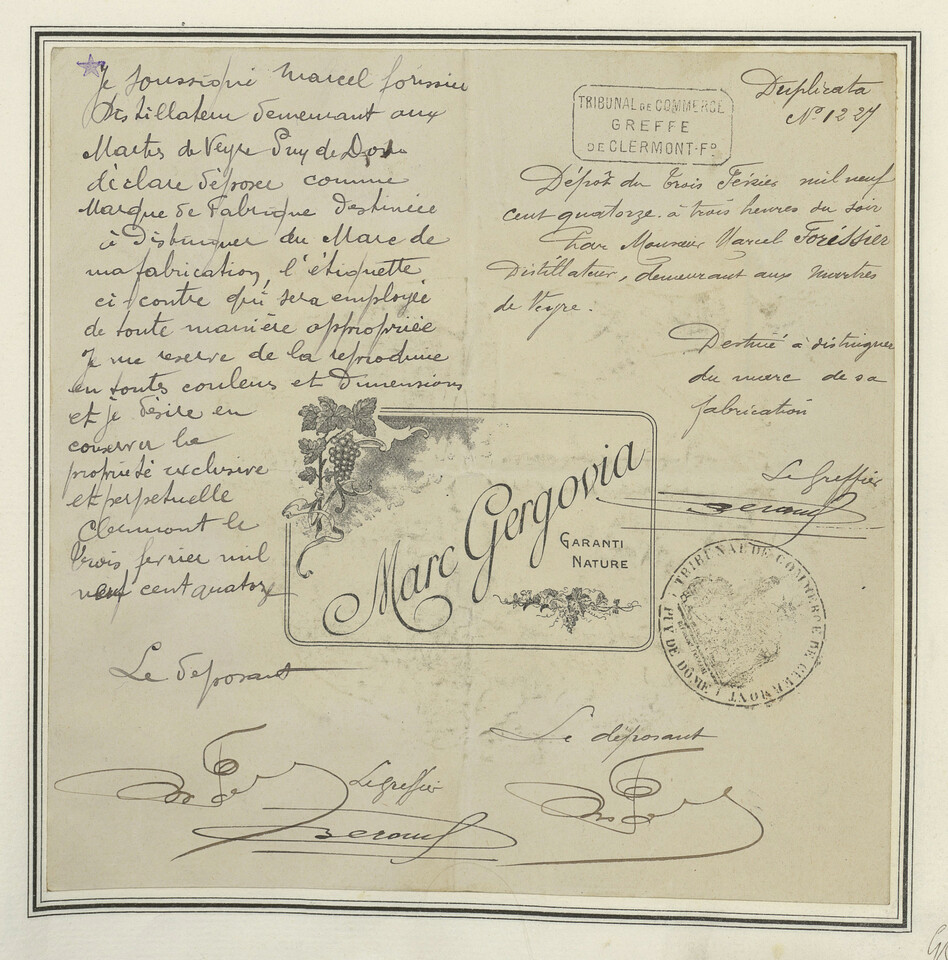 Je soussigné Marcel forissier
Distillateur demeurant aux
Martes de Veyre Puy de Dome
déclare déposer comme
Marque de Fabrique destinée
à Distinguer du Marc de
ma fabrication, l'étiquette
ci-contre qui sera employée
de toute manière appropriée
Je me reserve de la reproduire
en toutes couleurs et Dimensions
et je désire en
conserver la
propriété exclusive
et perpetuelle
Clermont le
trois fevrier mil
neuf cent quatorze
Le deposant
Le greffier
TRIBUNAL DE COMMERCE
GREFFE
DE CLERMONT-Fd
Duplicata
No 1227
Dépôt du trois Février mil neuf
cent quatorze à trois heures du soir
Par Monsieur Marcel Foréssier
Distillateur, demeurant aux Martres
de Veyre.
Destiné à distinguer
du marc de sa
fabrication
Le Greffier
Marc Gergovia
GARANTI
NATURE
TRIBUNAL DE COMMERCE DE CLERMONT
PUY DE DOME
Le déposant